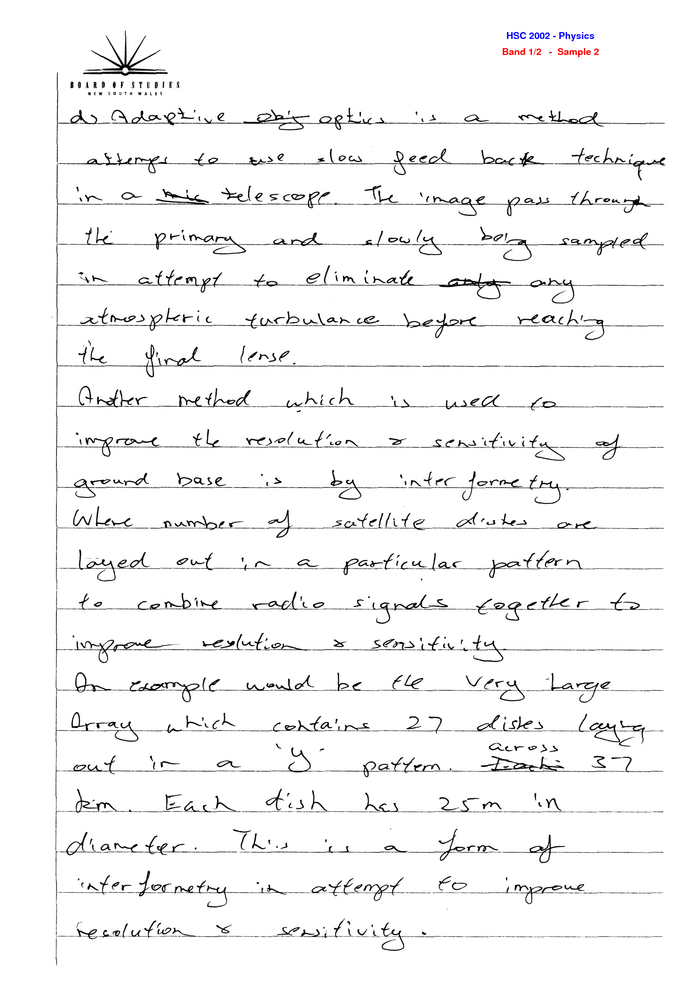 HSC 2002 - Physics
Band 1/2 - Sample 2
BOARD OF STUDIES
NEW SOUTH WALES
d) Adaptive obj optics is a method
attemps to use slow feed back technique
in a mic telescope. The image pass through
the primary and slowly being sampled
in attempt to eliminate only any
atmospheric turbulance before reaching
the final lense.
Another method which is used to
improve the resolution & sensitivity of
ground base is by interformetry.
Where number of satellite dishes are
layed out in a particular pattern
to combine radio signals together to
improve reslution & sensitivity.
An example would be the Very Large
Array which contains 27 dishes laying
out in a 'y' pattern. Each across 37
km. Each dish has 25m in
diameter. This is a form of
interformetry in attempt to improve
resolution & sensitivity.